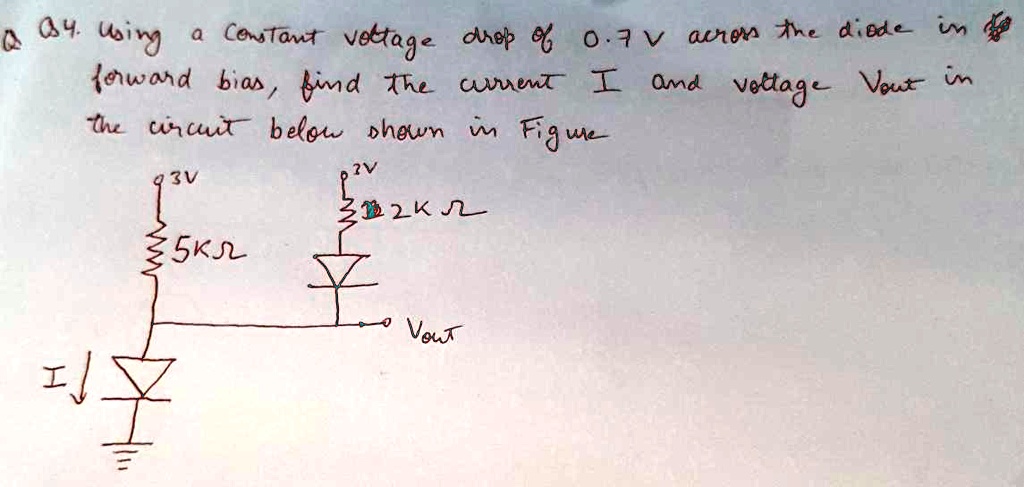 Q Q4. Using a Constant voltage drop of 0.7 V across the diode in
forward bias, find the current I and voltage Vout in
the circuit below shown in Figure
3V
2V
2K Ω
5KΩ
Vout
I